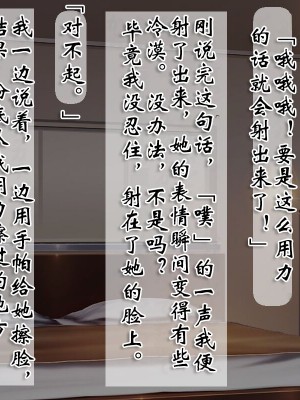 「哦哦哦！要是这么用力
的话就会射出来了！」
刚说完这句话，「噗」的一声我便
射了出来，她的表情瞬间变得有些
冷漠。没办法，不是吗？
毕竟我没忍住，射在了她的脸上。
「对不起。」
我一边说着，一边用手帕给她擦脸，